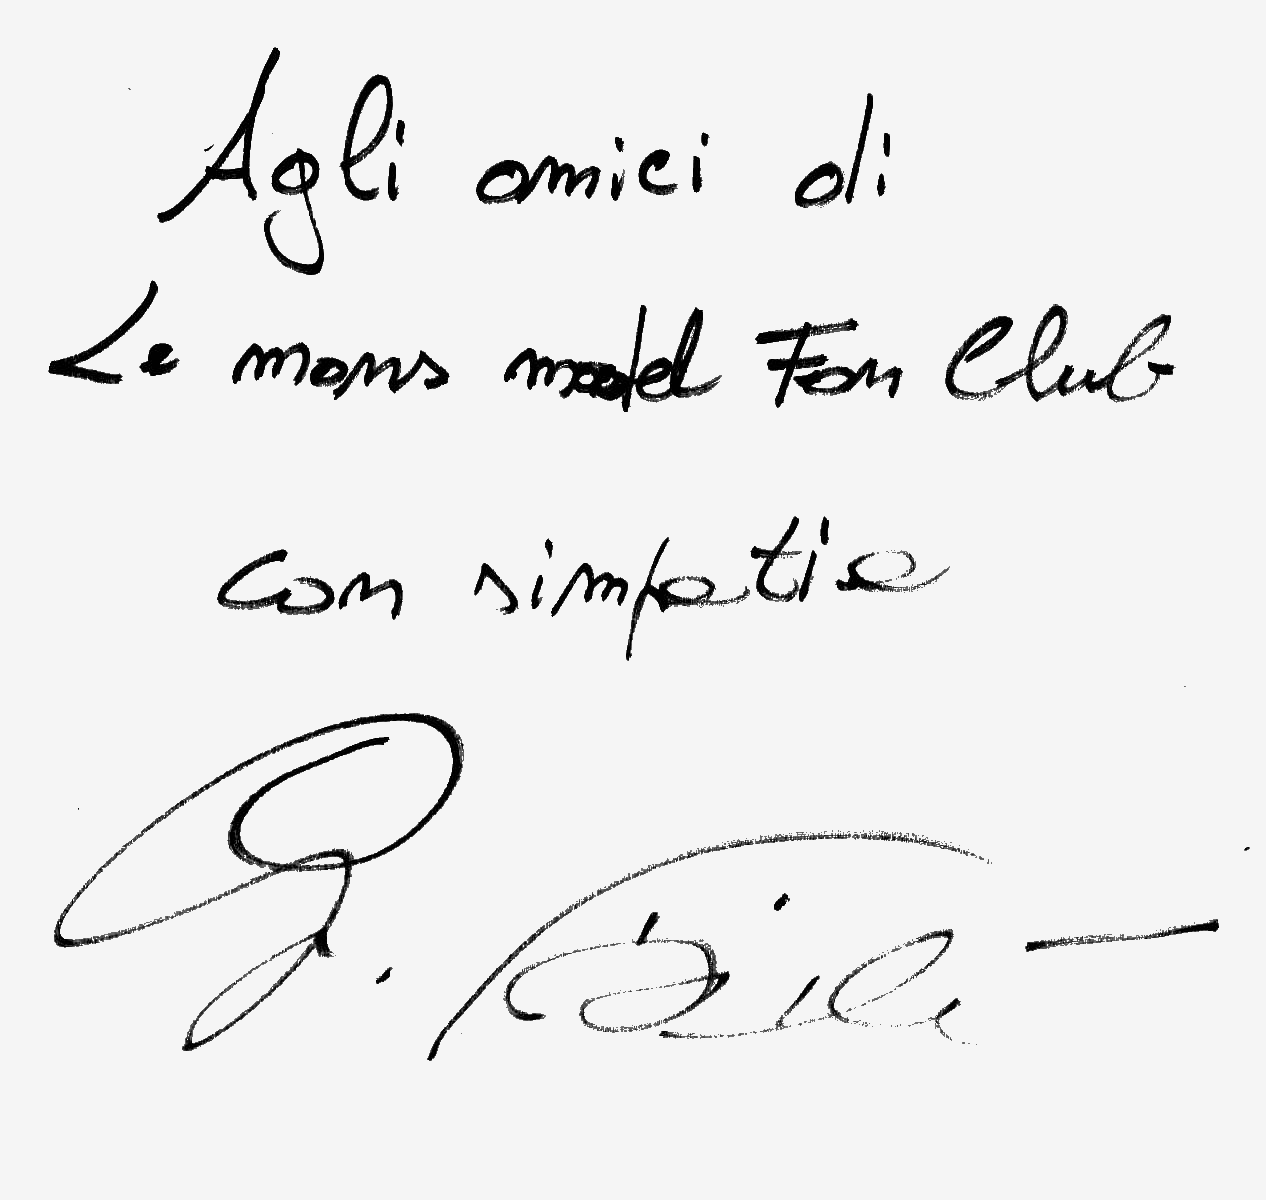 Agli amici di
Le mans model Fan Club
con simpatia
G.